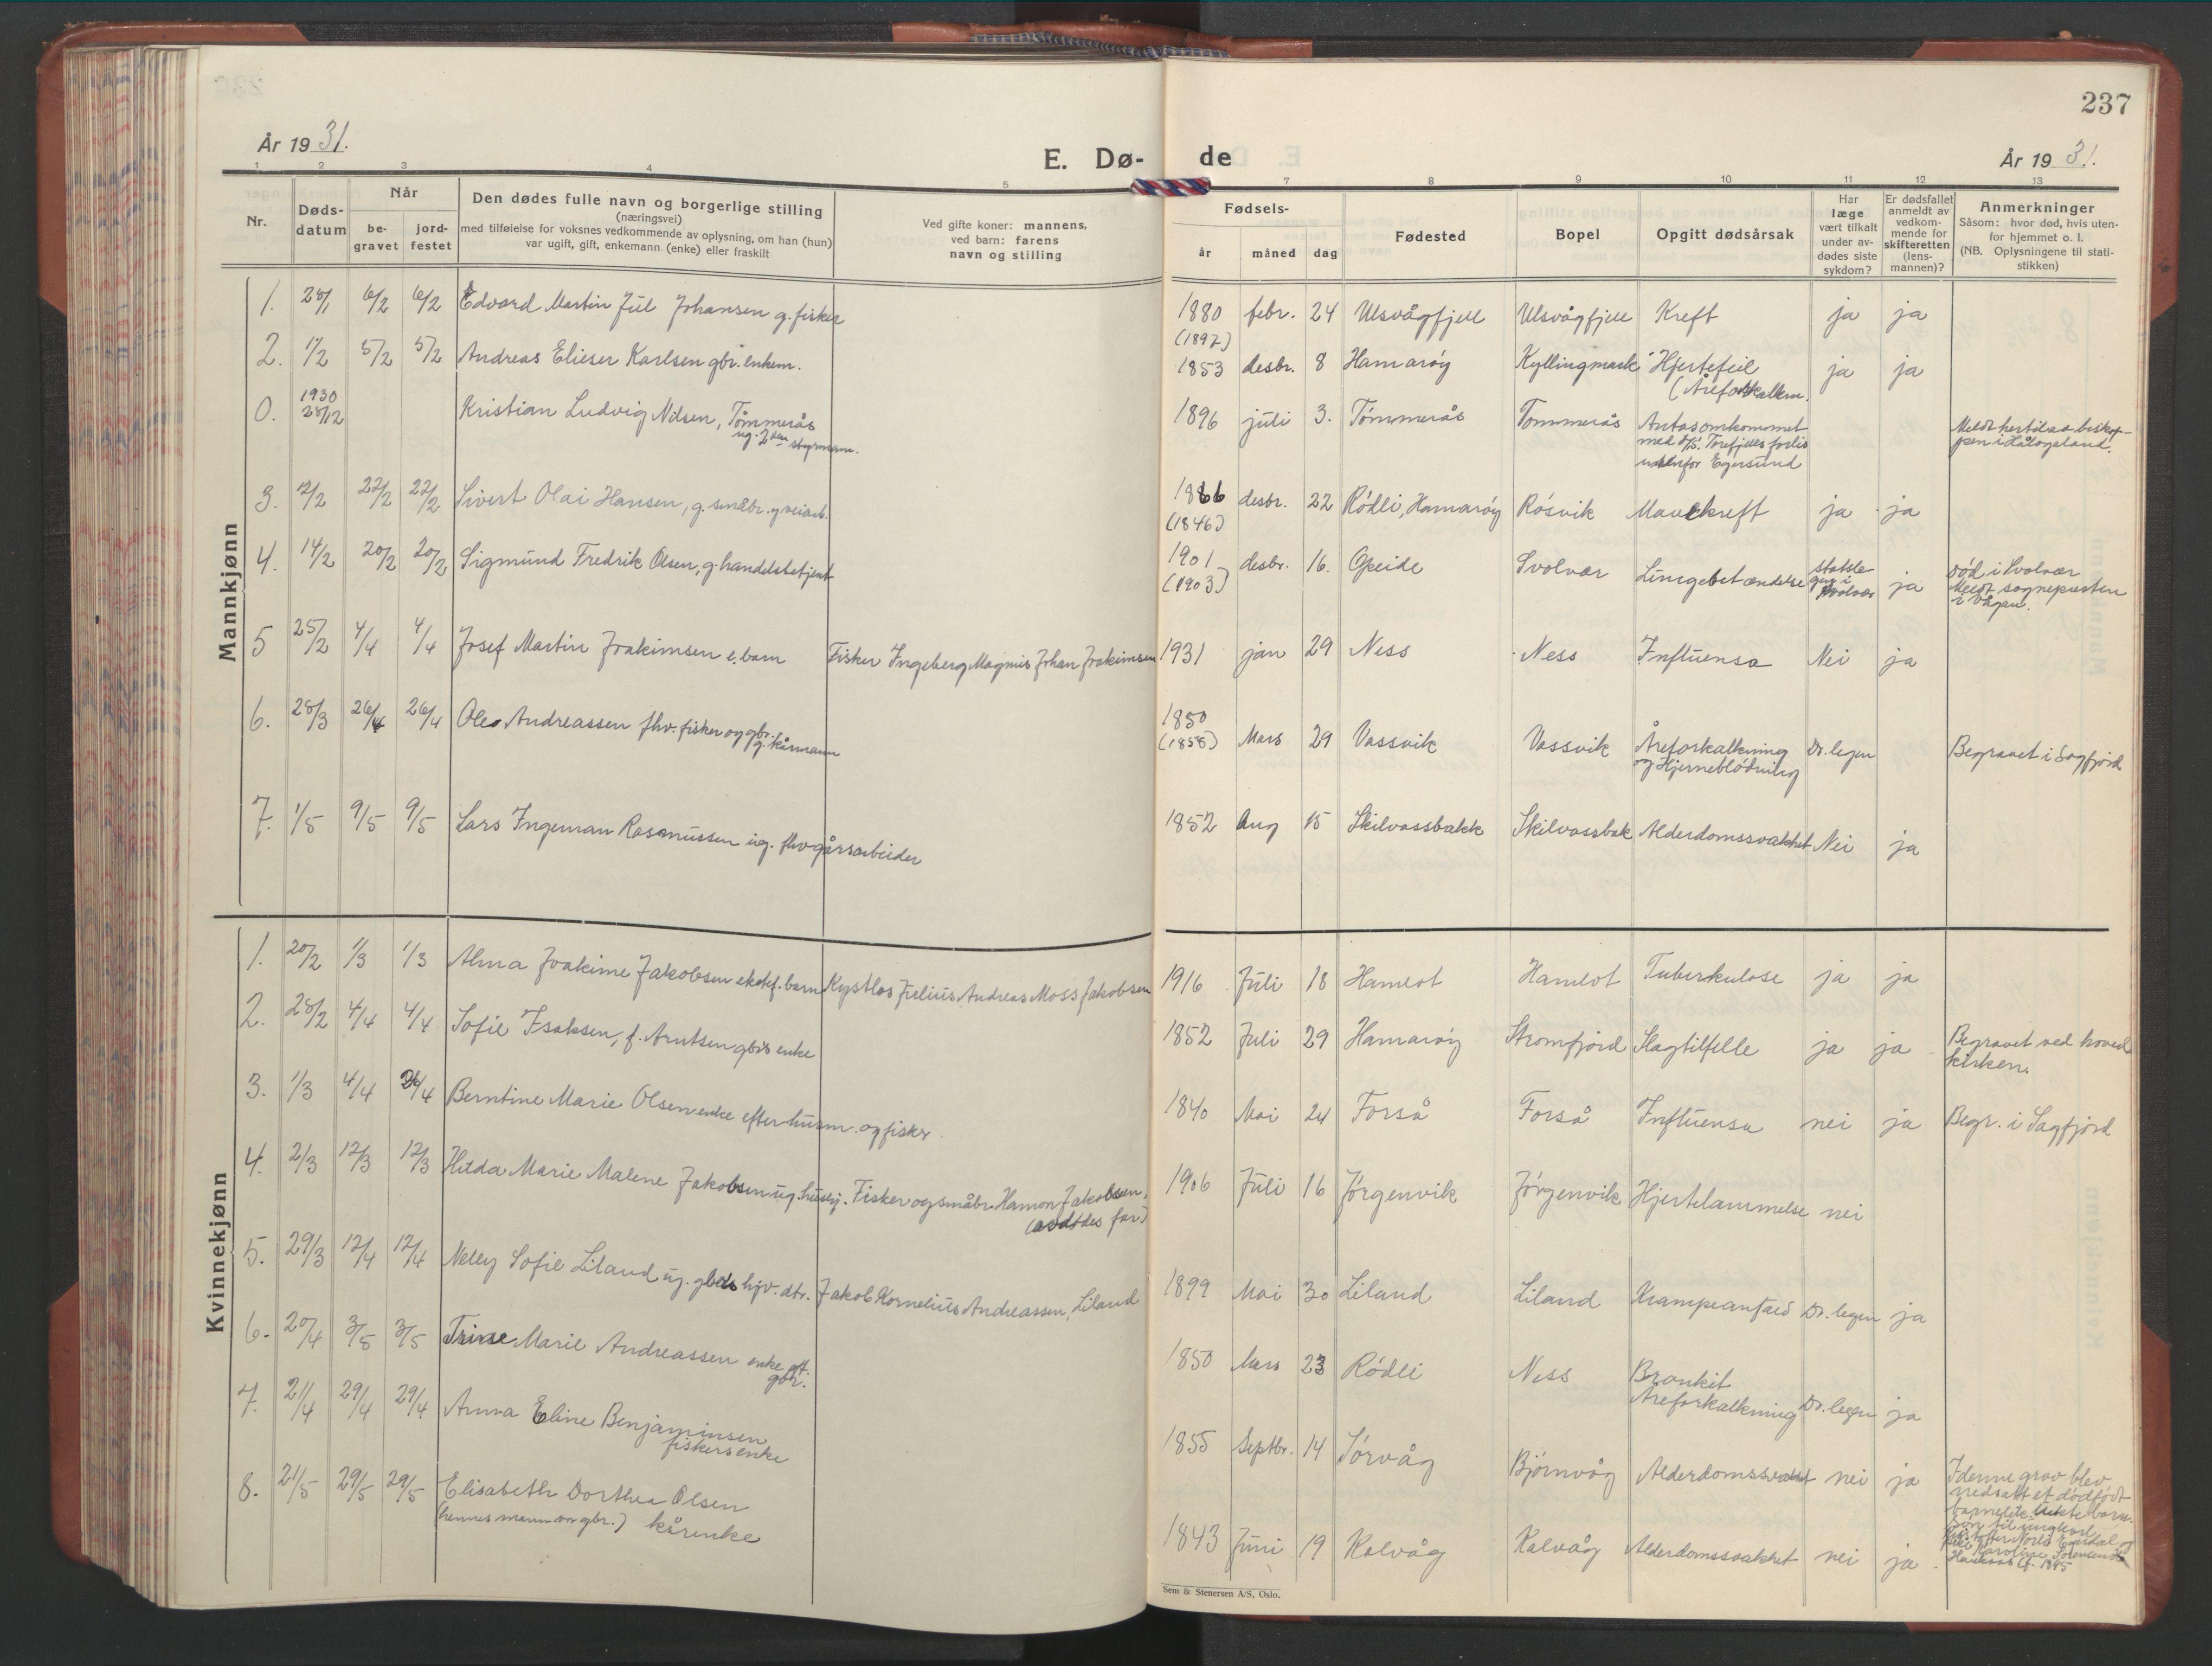 237
År 1931.
E. Dø-
de
År 1931.
1 2 3 4 5 7 8 9 10 11 12 13
Nr.
Døds-
datum
Når
be-
gravet
jord-
festet
Den dødes fulle navn og borgerlige stilling
(næringsvei)
med tilføielse for voksnes vedkommende av oplysning, om han (hun)
var ugift, gift, enkemann (enke) eller fraskilt
Ved gifte koner: mannens,
ved barn: farens
navn og stilling
Fødsels-
år måned dag
Fødested
Bopel
Opgitt dødsårsak
Har
læge
vært tilkalt
under av-
dødes siste
sykdom?
Er dødsfallet
anmeldt av
vedkom-
mende for
skifteretten
(lens-
mannen)?
Anmerkninger
Såsom: hvor død, hvis uten-
for hjemmet o. l.
(NB. Oplysningene til stati-
stikken)
Mannkjønn
1. 28/1 6/2 6/2 Edvard Martin Jul Johansen g. fisker 1880 febr. 24 Ulsvågfjell Ulsvågfjell Kreft ja ja
(1897)
2. 1/2 5/2 5/2 Andreas Elieser Karlsen gbr. enkem. 1853 desbr. 8 Hamarøy Kyllingmark Hjertefeil ja ja
(Åreforkalkn.
0. 1930
28/12 Kristian Ludvig Nilsen, Tømmerås 1896 juli 3. Tømmerås Tømmerås Antas omkommet
ug. 2den styrmann. med d/s. Torefjells forlis
utenfor Egersund
Meldt hertil av biskop-
pen i Hålogaland.
3. 12/2 22/2 22/2 Sivert Olai Hansen, g. småbr. og veiarb. 1866 desbr. 22 Rødli, Hamarøy Røsvik Mavekreft ja ja
(1846)
4. 14/2 20/2 20/2 Sigmund Fredrik Olsen, g. handelsbetjent 1901 desbr. 16. Opeide Svolvær Lungebetændelse statslegen i Svolvær ja
(1903)
død i Svolvær
Meldt sognepresten
i Vågan.
5 25/2 4/4 4/4 Josef Martin Joakimsen e. barn Fisker Ingeberg Magnus Johan Joakimsen 1931 jan 29 Ness Ness Influensa Nei ja
6. 28/3 26/4 26/4 Ole Andreassen fhv. fisker og gbr. 1850 Mars 29 Vassvik Vassvik Åreforkalkning Dr. legen Begravet i Sagfjord
g. kårmann (1858) og Hjerneblødning
7. 1/5 9/5 9/5 Lars Ingeman Rasmussen ug. fhv gårsarbeider 1852 Aug 15 Skilvassbakk Skilvassbak Alderdomssvakhet Nei ja
Kvinnekjønn
1. 20/2 1/3 1/3 Alma Joakime Jakobsen ektef. barn Kystlos Julius Andreas Moss Jakobsen 1916 Juli 18 Hamlot Hamlot Tuberkulose ja ja
2. 28/2 4/4 4/4 Sofie Isaksen, f. Arntsen gbrs enke 1852 Juli 29 Hamarøy Strømfjord Slagtilfelle ja ja Begravet ved hoved
kirken.
3. 1/3 4/4 26/4 Berntine Marie Olsen enke efter husm. og fisker 1840 Mai 24 Forså Forså Influensa nei ja Begr. i Sagfjord
4. 2/3 12/3 12/3 Hilda Marie Malene Jakobsen ug. husej. Fisker og småbr. Hamon Jakobsen. 1906 Juli 16 Jørgenvik Jørgenvik Hjertelammelse nei
(avdødes far)
5. 29/3 12/4 12/4 Nelly Sofie Liland ug. gbrs hjv. dtr. Jakob Kornelius Andreassen, Liland 1899 Mai 30 Liland Liland Krampeanfald Dr. legen ja
6. 20/4 3/5 3/5 Trine Marie Andreassen enke eft. 1850 Mars 23 Rødli Ness Bronkit
gbr. Åreforkalkning Dr. legen ja
7. 21/4 29/4 29/4 Anna Eline Benjaminsen 1855 Septbr. 14 Sørvåg Bjørnvåg Alderdomssvakhet nei ja
fiskersenke
8. 21/5 29/5 29/5 Elisabeth Dorthea Olsen 1843 Juni 19 Kalvåg Kalvåg Alderdomssvakhet nei ja
(hennes mann var gbr.) kårenke
I denne grav blev
nedsatt et dødfødt
Sem & Stenersen A/S, Oslo.